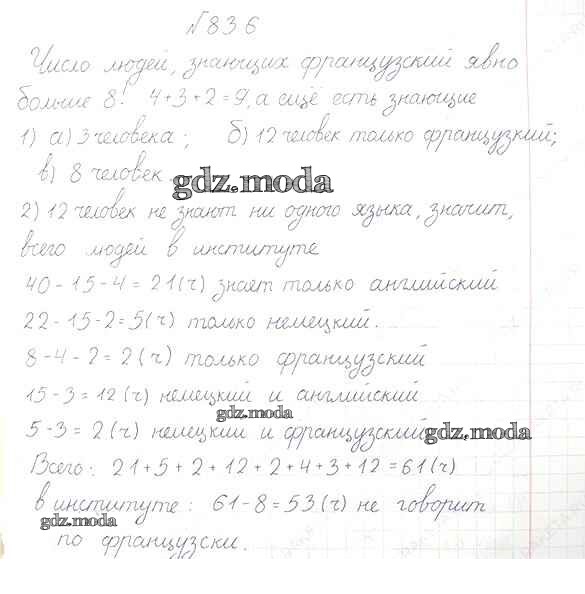 №836
Число людей, знающих французский явно
больше 8! 4+3+2=9, а ещё есть знающие
1) а) 3 человека; б) 12 человек только французкий;
в) 8 человек
gdz.moda
2) 12 человек не знают ни одного языка, значит,
всего людей в институте
40-15-4=21(ч) знает только английский
22-15-2=5(ч) только немецкий.
8-4-2=2(ч) только французский
15-3=12(ч) немецкий и английский
gdz.moda
5-3=2(ч) немецкий и французский
gdz.moda
Всего: 21+5+2+12+2+4+3+12=61(ч)
в институте: 61-8=53(ч) не говорит
gdz.moda
по французски.